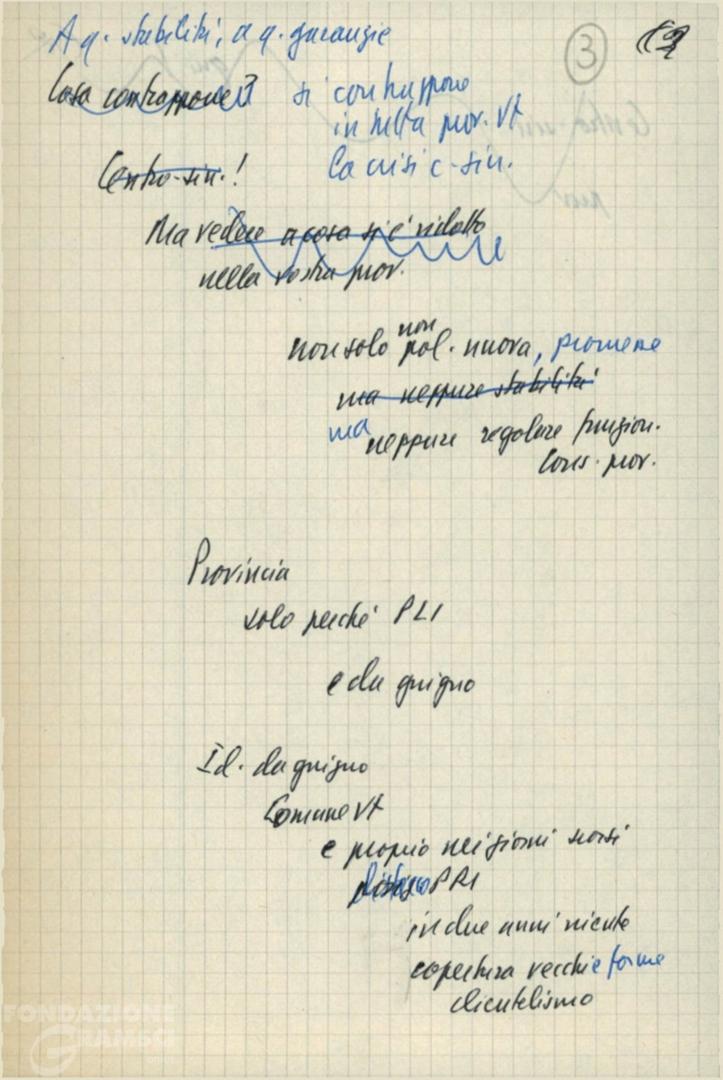 A q. stabilità, a q. garanzie
3
Cosa contrappone? si contrappone
in tutta prov. Vt
Centro-sin.! la crisi c-sin.
Ma vedere a cosa si è ridotto
nella vostra prov.
non solo non pol. nuova, promesse
ma neppure stabilità
ma neppure regolare funzion.
Cons. prov.
Provincia
solo perché PLI
e da giugno
Id. da giugno
Comune Vt
e proprio nei giorni scorsi
distacco PRI
in due anni niente
copertura vecchie forme
clientelismo
FONDAZIONE
GRAMSCI